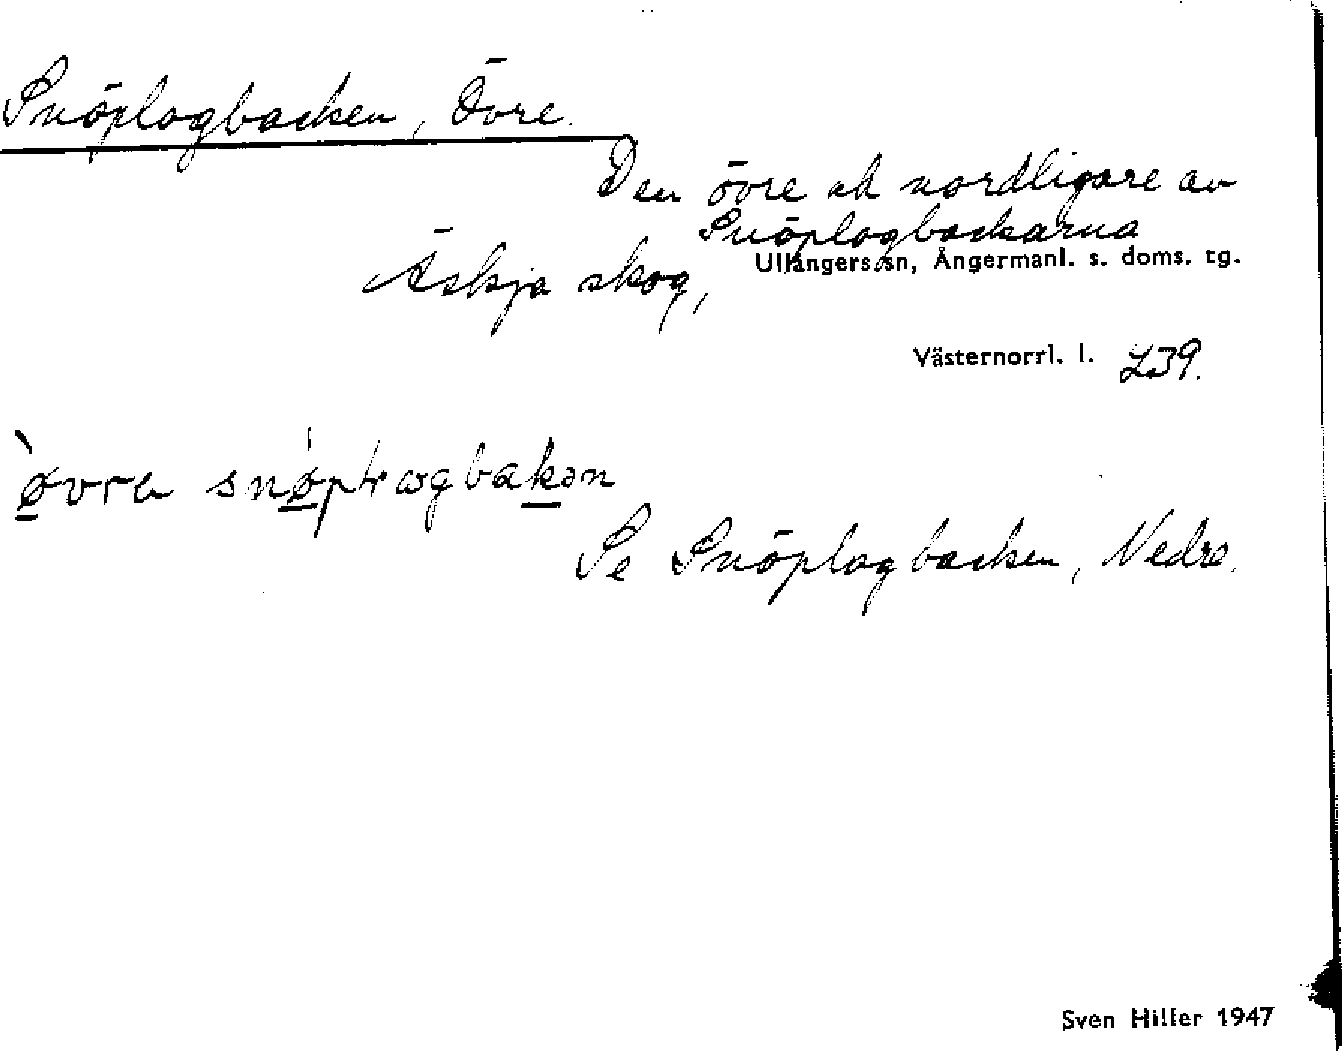 Snöplogbacken, Övre.
Den övre och nordligare av
Snöplogbackarna
Äskja skog, Ullångers sn, Ångermanl. s. doms. tg.
Västernorrl. l. 239.
Se Snöplogbacken, Nedre.
Sven Hiller 1947